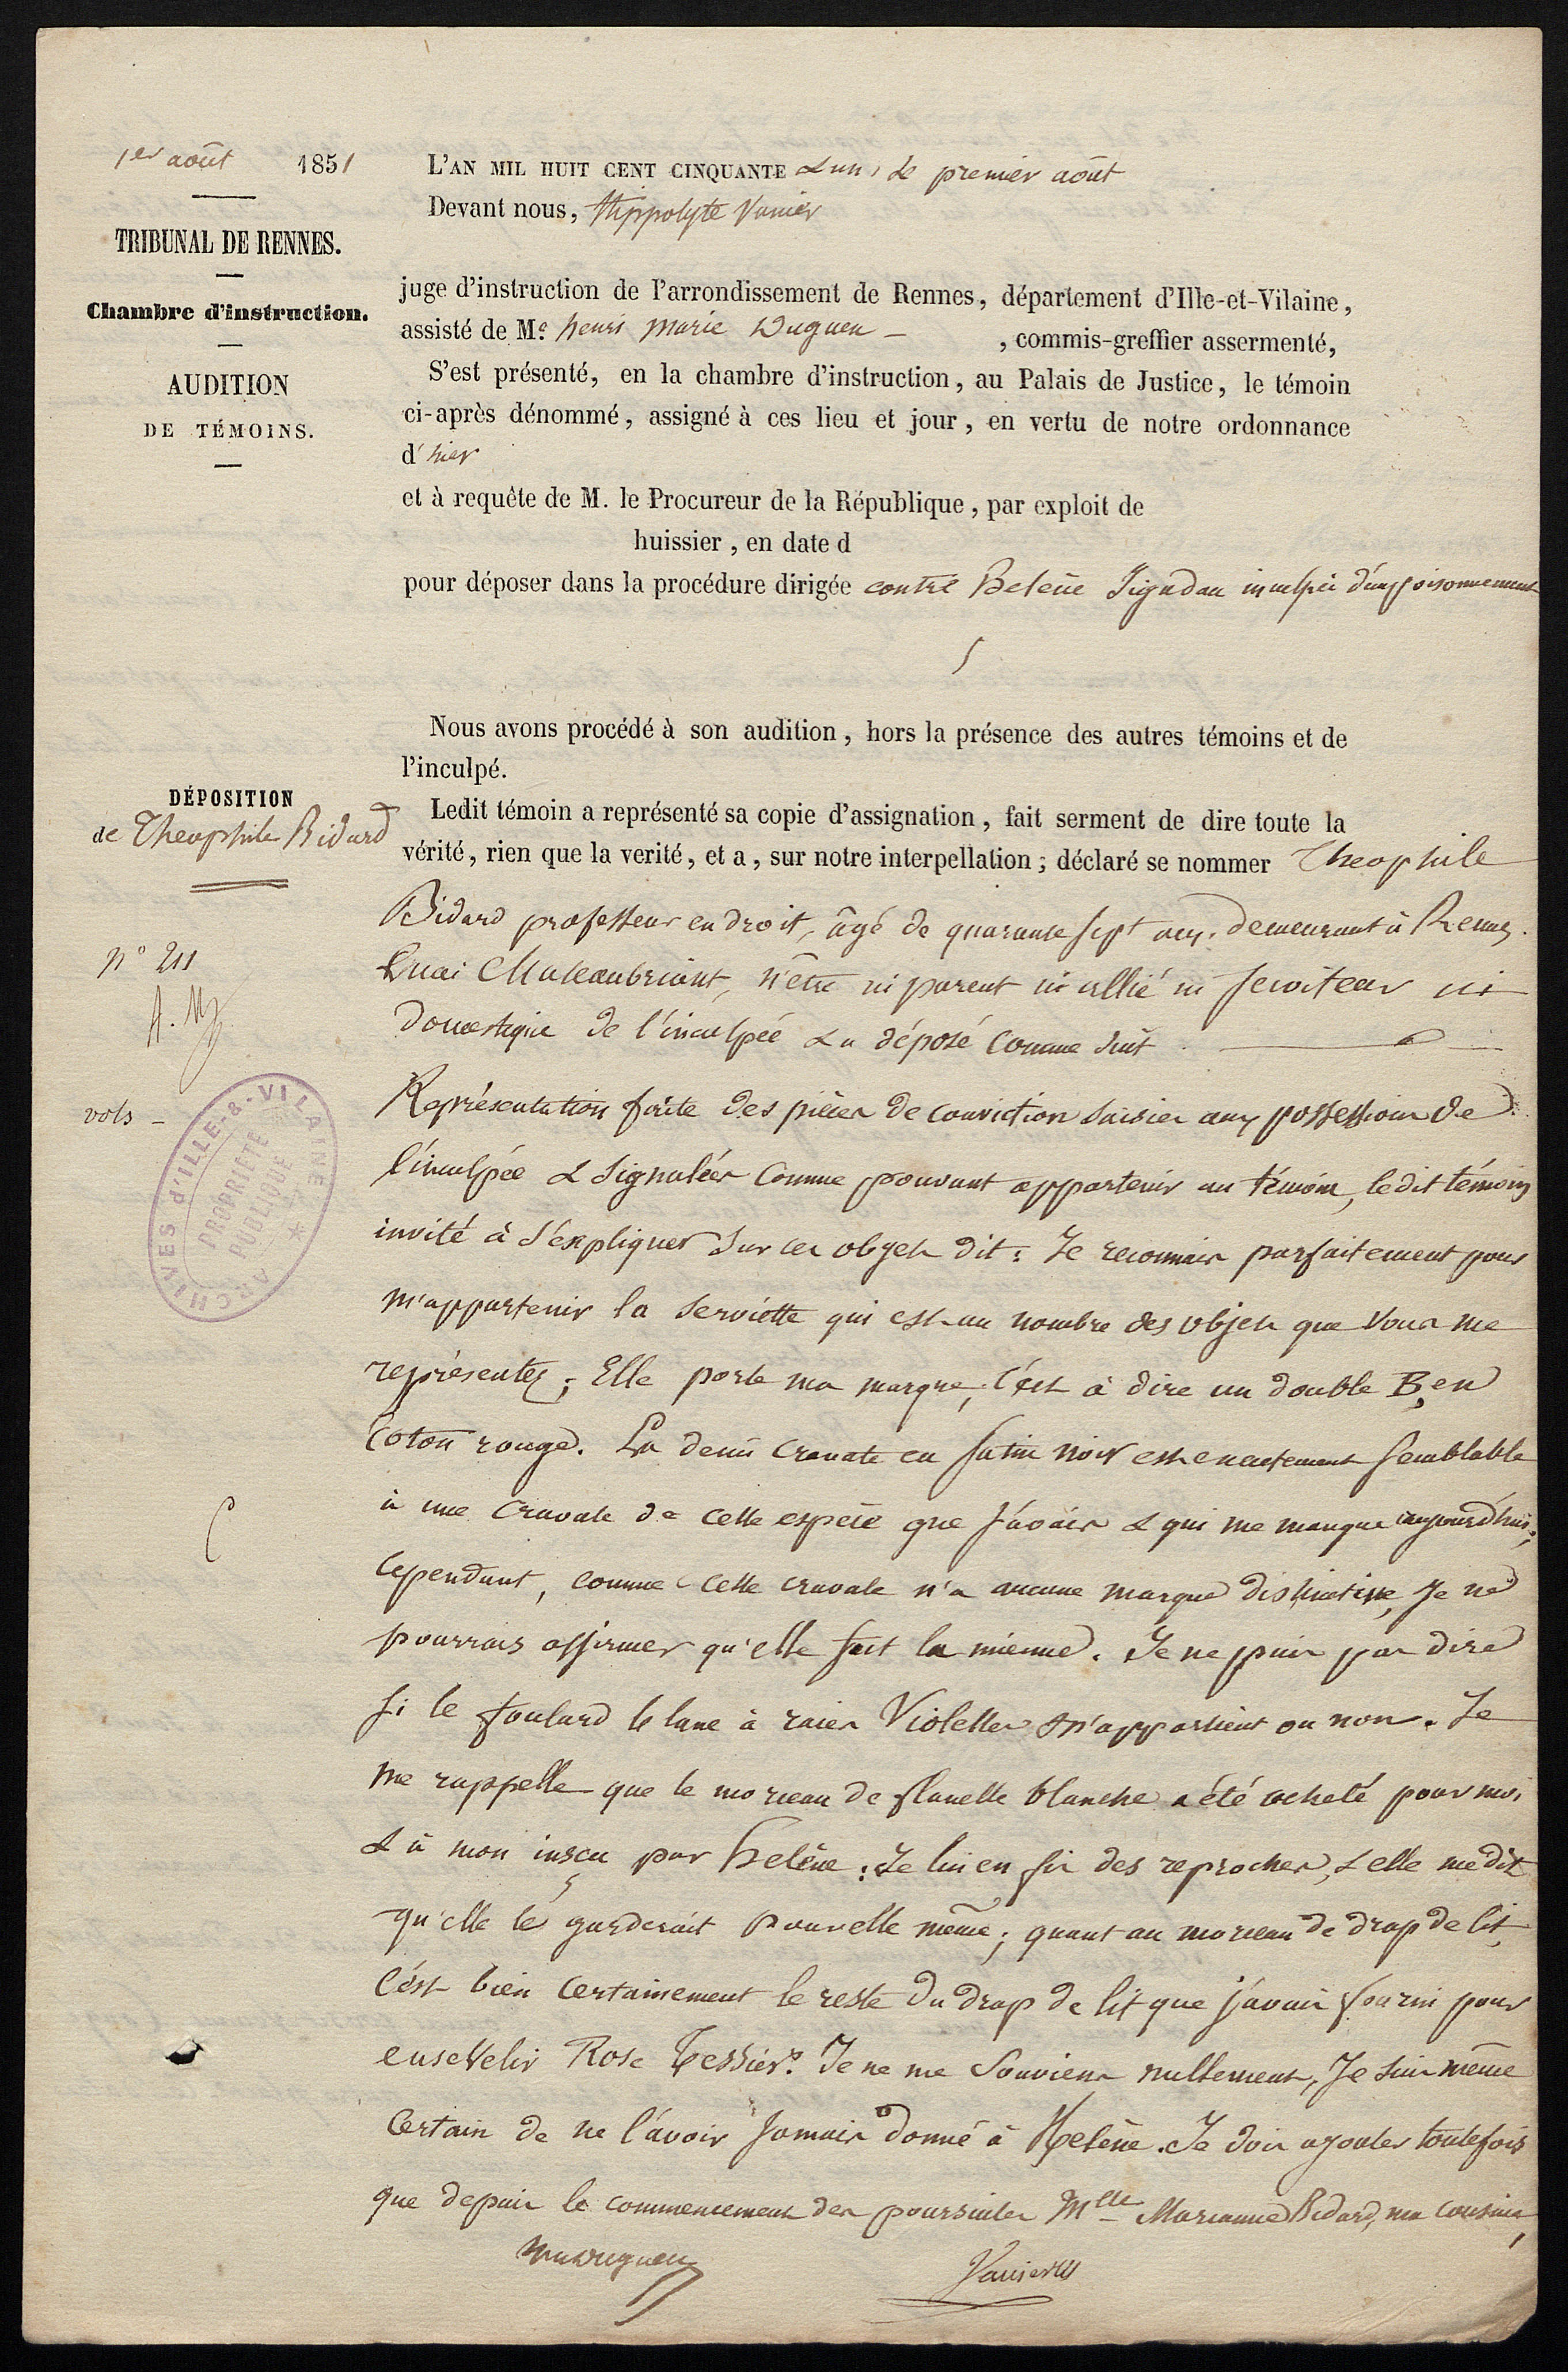 1er août 1851
TRIBUNAL DE RENNES.
Chambre d'instruction.
AUDITION
DE TÉMOINS.
L'AN MIL HUIT CENT CINQUANTE & un, Le premier août
Devant nous, Hippolyte Vanier
juge d'instruction de l'arrondissement de Rennes, département d'Ille-et-Vilaine,
assisté de Me. henri Marie Duguen — , commis-greffier assermenté,
S'est présenté, en la chambre d'instruction, au Palais de Justice, le témoin
ci-après dénommé, assigné à ces lieu et jour, en vertu de notre ordonnance
d'hier
et à requête de M. le Procureur de la République, par exploit de
huissier, en date d
pour déposer dans la procédure dirigée contre Helène Jigadau inculpée d'empoisonnement
Nous avons procédé à son audition, hors la présence des autres témoins et de
l'inculpé.
DÉPOSITION
de Theophile Bidard
Ledit témoin a représenté sa copie d'assignation, fait serment de dire toute la
vérité, rien que la verité, et a, sur notre interpellation; déclaré se nommer Theophile
Bidard professeur en droit, âgé de quarante sept ans, demeurant à Rennes.
Quai Chateaubriant, n'être ni parent ni allié ni serviteur ni
domestique de l'inculpée & a déposé comme suit.
n° 211
vols —
ARCHIVES d'ILLE-&-VILAINE
PROPRIÉTÉ
PUBLIQUE
Représentation faite des pièces de conviction saisies aux possessions de
l'inculpée & signalées comme pouvant appartenir au témoin, ledit témoin
invité à s'expliquer sur ces objets dit: Je reconnais parfaitement pour
m'appartenir la serviette qui est au nombre des objets que vous me
représentez; Elle porte ma marque, c'est à dire un double B, en
coton rouge. La demi cravate en satin noir est exactement semblable
à une cravate de cette espèce que j'avais & qui me manque aujourd'hui;
cependant, comme cette cravate n'a aucune marque distinctive, Je ne
pourrais affirmer qu'elle fut la mienne. Je ne puis pas dire
si le foulard blanc à raies Violettes m'appartient ou non. Je
me rappelle que le morceau de flanelle blanche a été acheté pour moi
& à mon insçu par helène; Je lui en fis des reproches, & elle me dit
qu'elle le garderait pour elle même; quant au morceau de drap de lit,
c'est bien certainement le reste du drap de lit que j'avais fourni pour
ensevelir Rose Tessier. Je ne me souviens nullement, Je suis même
certain de ne l'avoir jamais donné à Helène. Je dois ajouter toutefois
que depuis le commencement des poursuites Mlle Marianne Bidard, ma cousine,
Duguen
Vanier